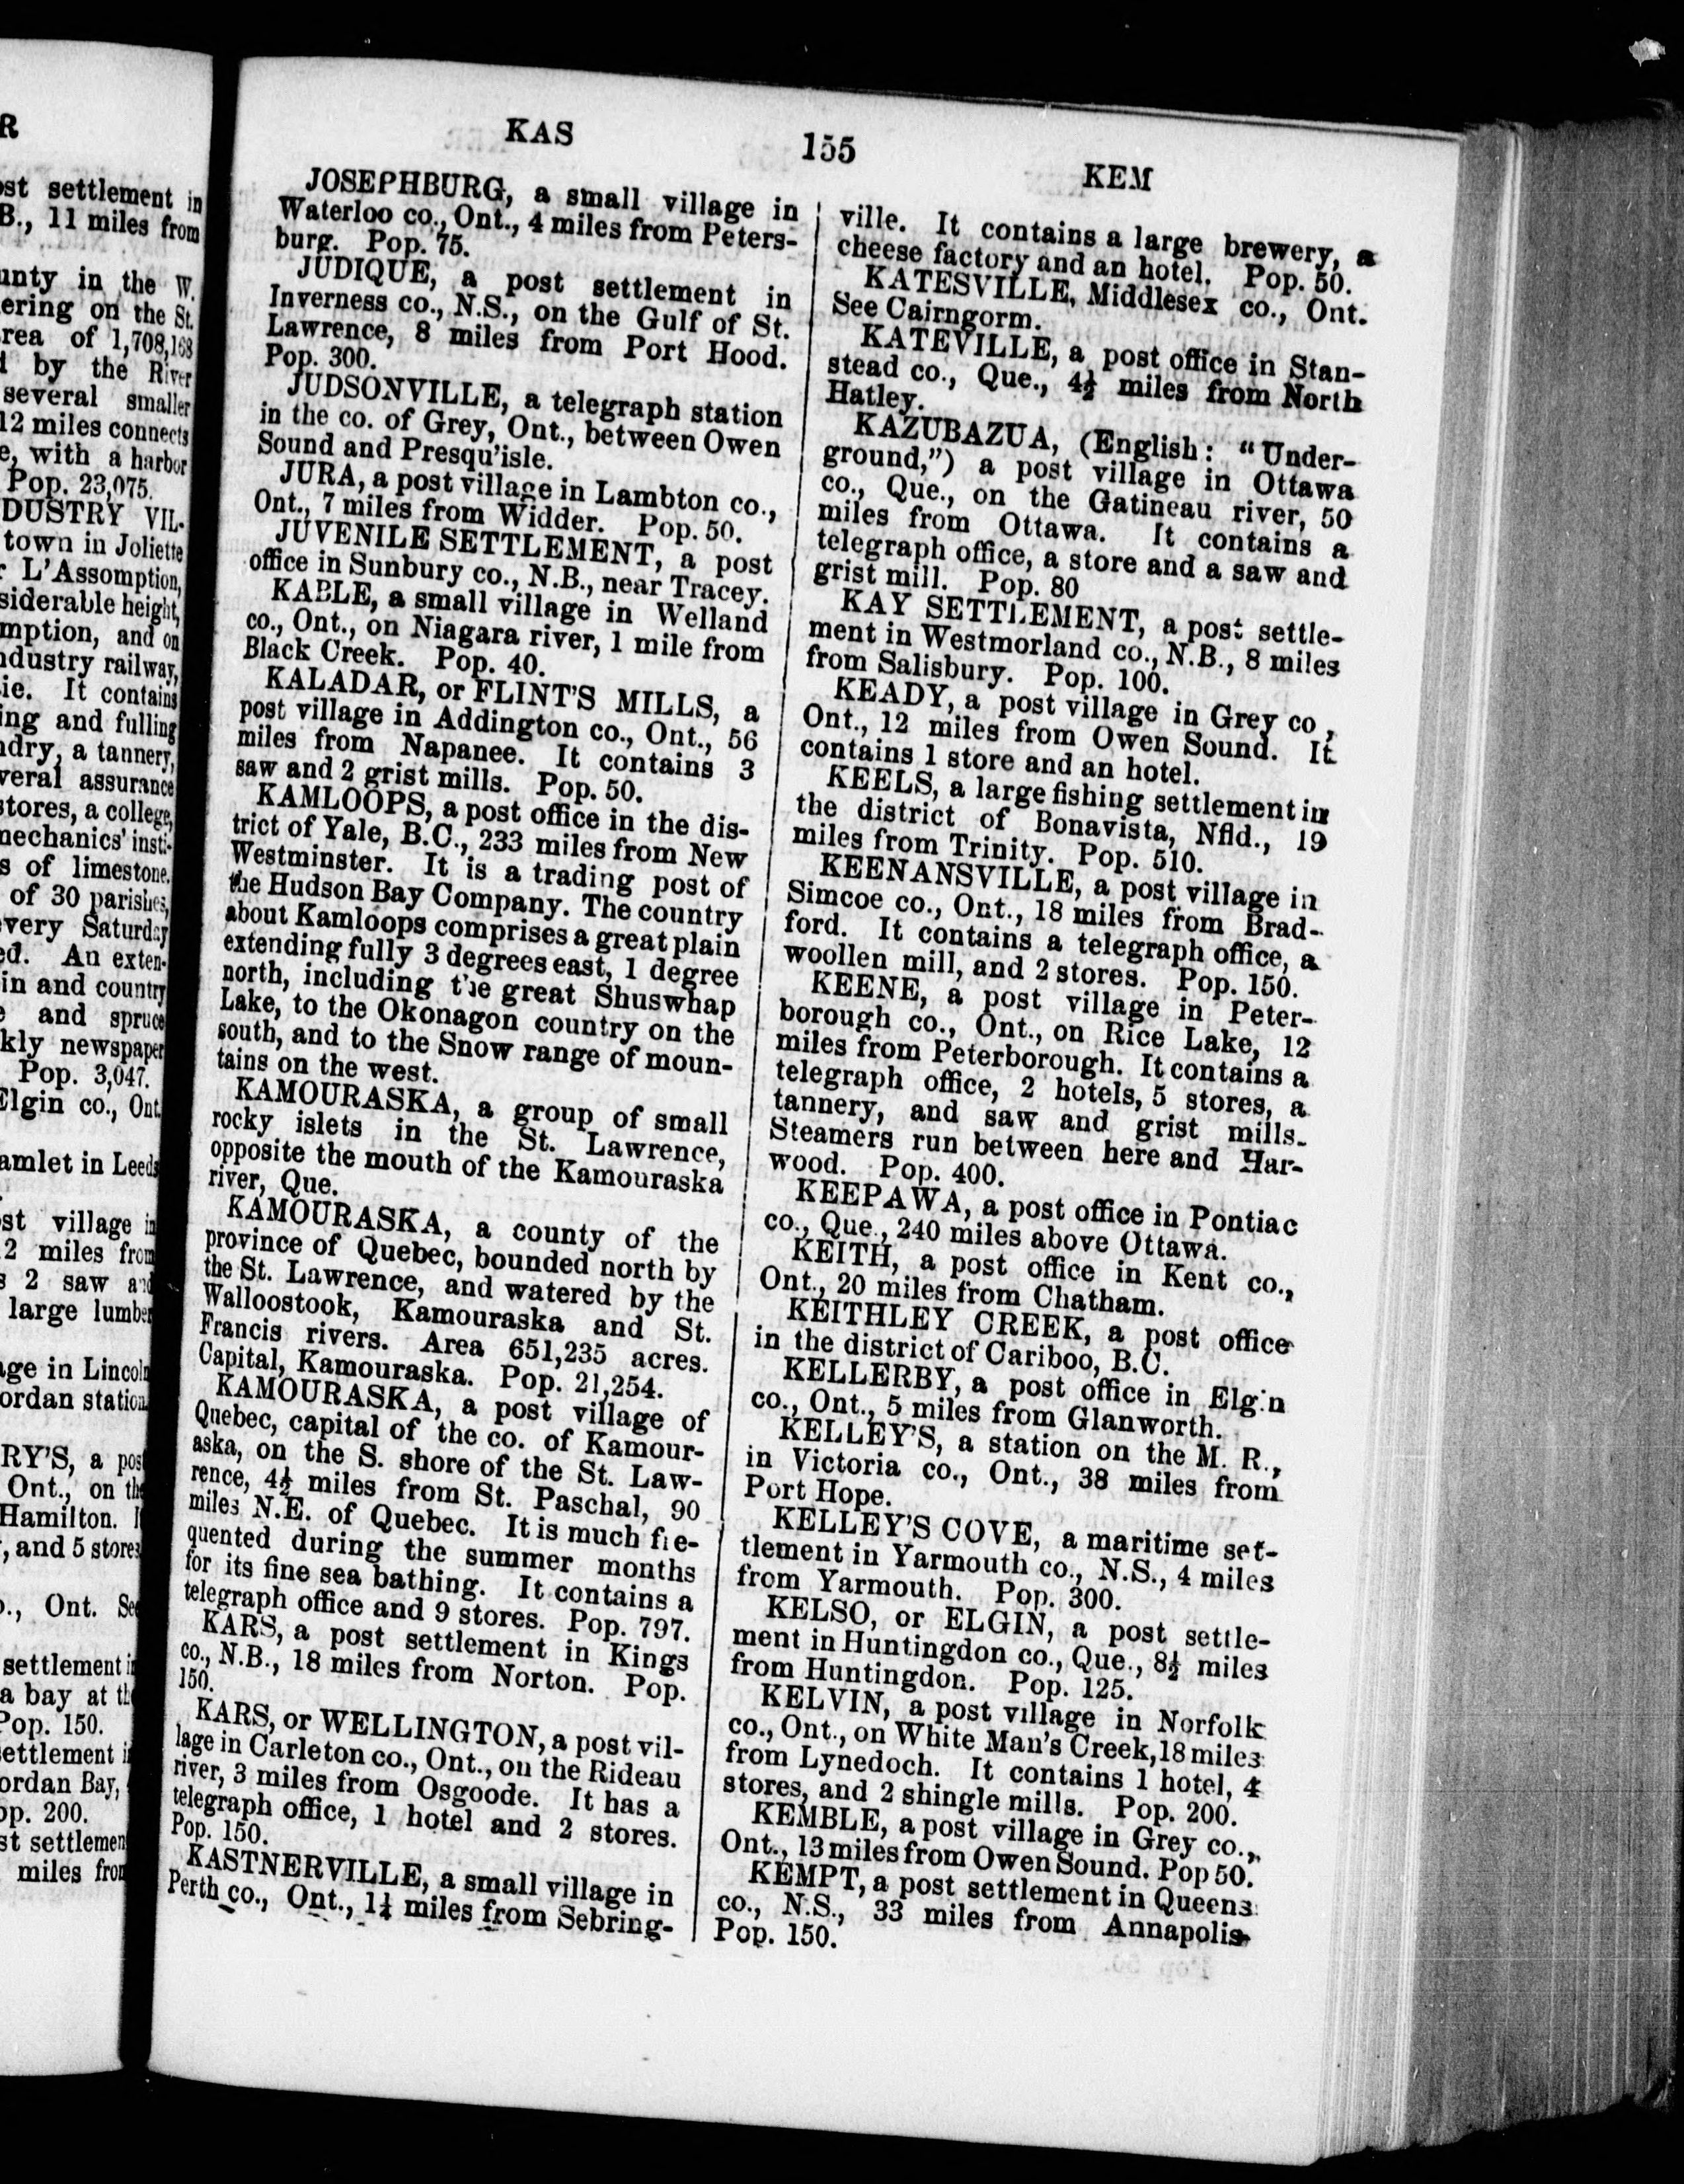 R
st settlement in
B., 11 miles from
unty in the W.
ering on the St.
rea of 1,708,168
by the River
several smaller
12 miles connects
e, with a harbor
Pop. 23,075.
DUSTRY VIL-
town in Joliette
L'Assomption,
siderable height,
mption, and on
dustry railway,
ie. It contains
ing and fulling
dry, a tannery,
veral assurance
stores, a college,
mechanics' insti-
s of limestone.
of 30 parishes,
very Saturday
ed. An exten-
in and country
and spruce
kly newspaper
Pop. 3,047.
Elgin co., Ont.
amlet in Leeds
st village in
2 miles from
s 2 saw and
large lumber
age in Lincoln
ordan station.
RY'S, a post
Ont., on the
Hamilton.
, and 5 stores
., Ont. See
settlement in
a bay at the
Pop. 150.
settlement in
ordan Bay,
op. 200.
st settlement
miles from
KAS 155 KEM
JOSEPHBURG, a small village in
Waterloo co., Ont., 4 miles from Peters-
burg. Pop. 75.
JUDIQUE, a post settlement in
Inverness co., N.S., on the Gulf of St.
Lawrence, 8 miles from Port Hood.
Pop. 300.
JUDSONVILLE, a telegraph station
in the co. of Grey, Ont., between Owen
Sound and Presqu'isle.
JURA, a post village in Lambton co.,
Ont., 7 miles from Widder. Pop. 50.
JUVENILE SETTLEMENT, a post
office in Sunbury co., N.B., near Tracey.
KABLE, a small village in Welland
co., Ont., on Niagara river, 1 mile from
Black Creek. Pop. 40.
KALADAR, or FLINT'S MILLS, a
post village in Addington co., Ont., 56
miles from Napanee. It contains 3
saw and 2 grist mills. Pop. 50.
KAMLOOPS, a post office in the dis-
trict of Yale, B.C., 233 miles from New
Westminster. It is a trading post of
the Hudson Bay Company. The country
about Kamloops comprises a great plain
extending fully 3 degrees east, 1 degree
north, including the great Shuswhap
Lake, to the Okonagon country on the
south, and to the Snow range of moun-
tains on the west.
KAMOURASKA, a group of small
rocky islets in the St. Lawrence,
opposite the mouth of the Kamouraska
river, Que.
KAMOURASKA, a county of the
province of Quebec, bounded north by
the St. Lawrence, and watered by the
Walloostook, Kamouraska and St.
Francis rivers. Area 651,235 acres.
Capital, Kamouraska. Pop. 21,254.
KAMOURASKA, a post village of
Quebec, capital of the co. of Kamour-
aska, on the S. shore of the St. Law-
rence, 4½ miles from St. Paschal, 90
miles N.E. of Quebec. It is much fre-
quented during the summer months
for its fine sea bathing. It contains a
telegraph office and 9 stores. Pop. 797.
KARS, a post settlement in Kings
co., N.B., 18 miles from Norton. Pop.
150.
KARS, or WELLINGTON, a post vil-
lage in Carleton co., Ont., on the Rideau
river, 3 miles from Osgoode. It has a
telegraph office, 1 hotel and 2 stores.
Pop. 150.
KASTNERVILLE, a small village in
Perth co., Ont., 1¼ miles from Sebring-
ville. It contains a large brewery, a
cheese factory and an hotel. Pop. 50.
KATESVILLE, Middlesex co., Ont.
See Cairngorm.
KATEVILLE, a post office in Stan-
stead co., Que., 4½ miles from North
Hatley.
KAZUBAZUA, (English: "Under-
ground,") a post village in Ottawa
co., Que., on the Gatineau river, 50
miles from Ottawa. It contains a
telegraph office, a store and a saw and
grist mill. Pop. 80
KAY SETTLEMENT, a post settle-
ment in Westmorland co., N.B., 8 miles
from Salisbury. Pop. 100.
KEADY, a post village in Grey co,
Ont., 12 miles from Owen Sound. It
contains 1 store and an hotel.
KEELS, a large fishing settlement in
the district of Bonavista, Nfld., 19
miles from Trinity. Pop. 510.
KEENANSVILLE, a post village in
Simcoe co., Ont., 18 miles from Brad-
ford. It contains a telegraph office, a
woollen mill, and 2 stores. Pop. 150.
KEENE, a post village in Peter-
borough co., Ont., on Rice Lake, 12
miles from Peterborough. It contains a
telegraph office, 2 hotels, 5 stores, a
tannery, and saw and grist mills.
Steamers run between here and Har-
wood. Pop. 400.
KEEPAWA, a post office in Pontiac
co., Que., 240 miles above Ottawa.
KEITH, a post office in Kent co.,
Ont., 20 miles from Chatham.
KEITHLEY CREEK, a post office
in the district of Cariboo, B.C.
KELLERBY, a post office in Elgin
co., Ont., 5 miles from Glanworth.
KELLEY'S, a station on the M. R.,
in Victoria co., Ont., 38 miles from
Port Hope.
KELLEY'S COVE, a maritime set-
tlement in Yarmouth co., N.S., 4 miles
from Yarmouth. Pop. 300.
KELSO, or ELGIN, a post settle-
ment in Huntingdon co., Que., 8½ miles
from Huntingdon. Pop. 125.
KELVIN, a post village in Norfolk
co., Ont., on White Man's Creek, 18 miles
from Lynedoch. It contains 1 hotel, 4
stores, and 2 shingle mills. Pop. 200.
KEMBLE, a post village in Grey co.,
Ont., 13 miles from Owen Sound. Pop 50.
KEMPT, a post settlement in Queens
co., N.S., 33 miles from Annapolis
Pop. 150.